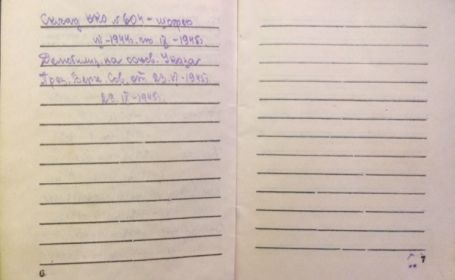 Склад НКО №604 - шофер
VI-1944г. по IX-1945г.
Демобилиз. на основ. Указа
През. Верх. Сов. от 23.VI-1945г.
23.IX-1945г.
6
7